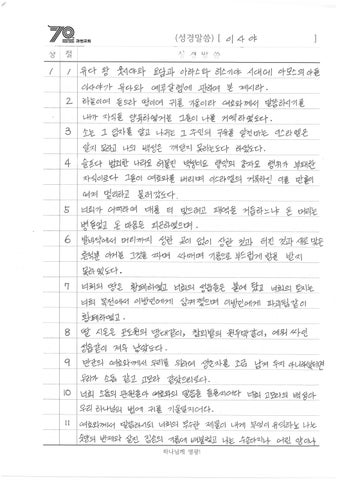 70 과천교회
(성경말씀) [ 이사야 ]
장 절 성경말씀
1 1 유다 왕 웃시야와 요담과 아하스와 히스기야 시대에 아모스의 아들
이사야가 유다와 예루살렘에 관하여 본 계시라.
2 하늘이여 들으라 땅이여 귀를 기울이라 여호와께서 말씀하시기를
내가 자식을 양육하였거늘 그들이 나를 거역하였도다.
3 소는 그 임자를 알고 나귀는 그 주인의 구유를 알건마는 이스라엘은
알지 못하고 나의 백성은 깨닫지 못하는도다 하셨도다.
4 슬프다 범죄한 나라요 허물진 백성이요 행악의 종자요 행위가 부패한
자식이로다 그들이 여호와를 버리며 이스라엘의 거룩하신 이를 만홀히
여겨 멀리하고 물러갔도다.
5 너희가 어찌하여 매를 더 맞으려고 패역을 거듭하느냐 온 머리는
병들었고 온 마음은 피곤하였으며.
6 발바닥에서 머리까지 성한 곳이 없이 상한 것과 터진 것과 새로 맞은
흔적뿐 이거늘 그것을 짜며 싸매며 기름으로 부드럽게 함을 받지
못하였도다.
7 너희의 땅은 황폐하였고 너희의 성읍들은 불에 탔고 너희의 토지는
너희 목전에서 이방인에게 삼켜졌으며 이방인에게 파괴됨같이
황폐하였고.
8 딸 시온은 포도원의 망대같이, 참외밭의 원두막같이, 에워 싸인
성읍같이 겨우 남았도다.
9 만군의 여호와께서 우리를 위하여 생존자를 조금 남겨 두지 아니하셨더면
우리가 소돔 같고 고모라 같았으리로다.
10 너희 소돔의 관원들아 여호와의 말씀을 들을지어다 너희 고모라의 백성아
우리 하나님의 법에 귀를 기울일지어다.
11 여호와께서 말씀하시되 너희의 무수한 제물이 내게 무엇이 유익하뇨 나는
숫양의 번제와 살진 짐승의 기름에 배불렀고 나는 수송아지나 어린 양이나
하나님께 영광!